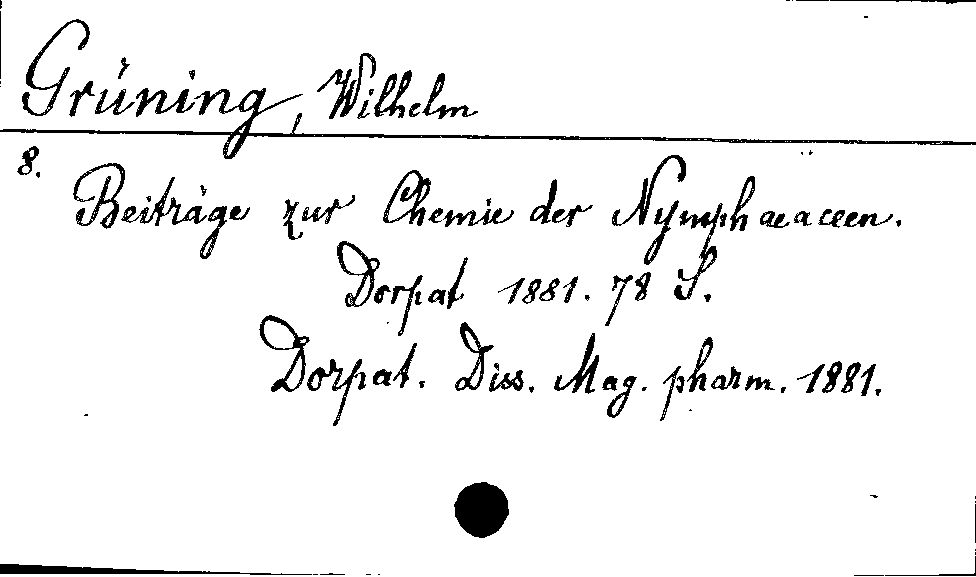 Grüning, Wilhelm
8.
Beiträge zur Chemie der Nymphaeaceen.
Dorpat 1881. 78 S.
Dorpat. Diss. Mag. pharm. 1881.